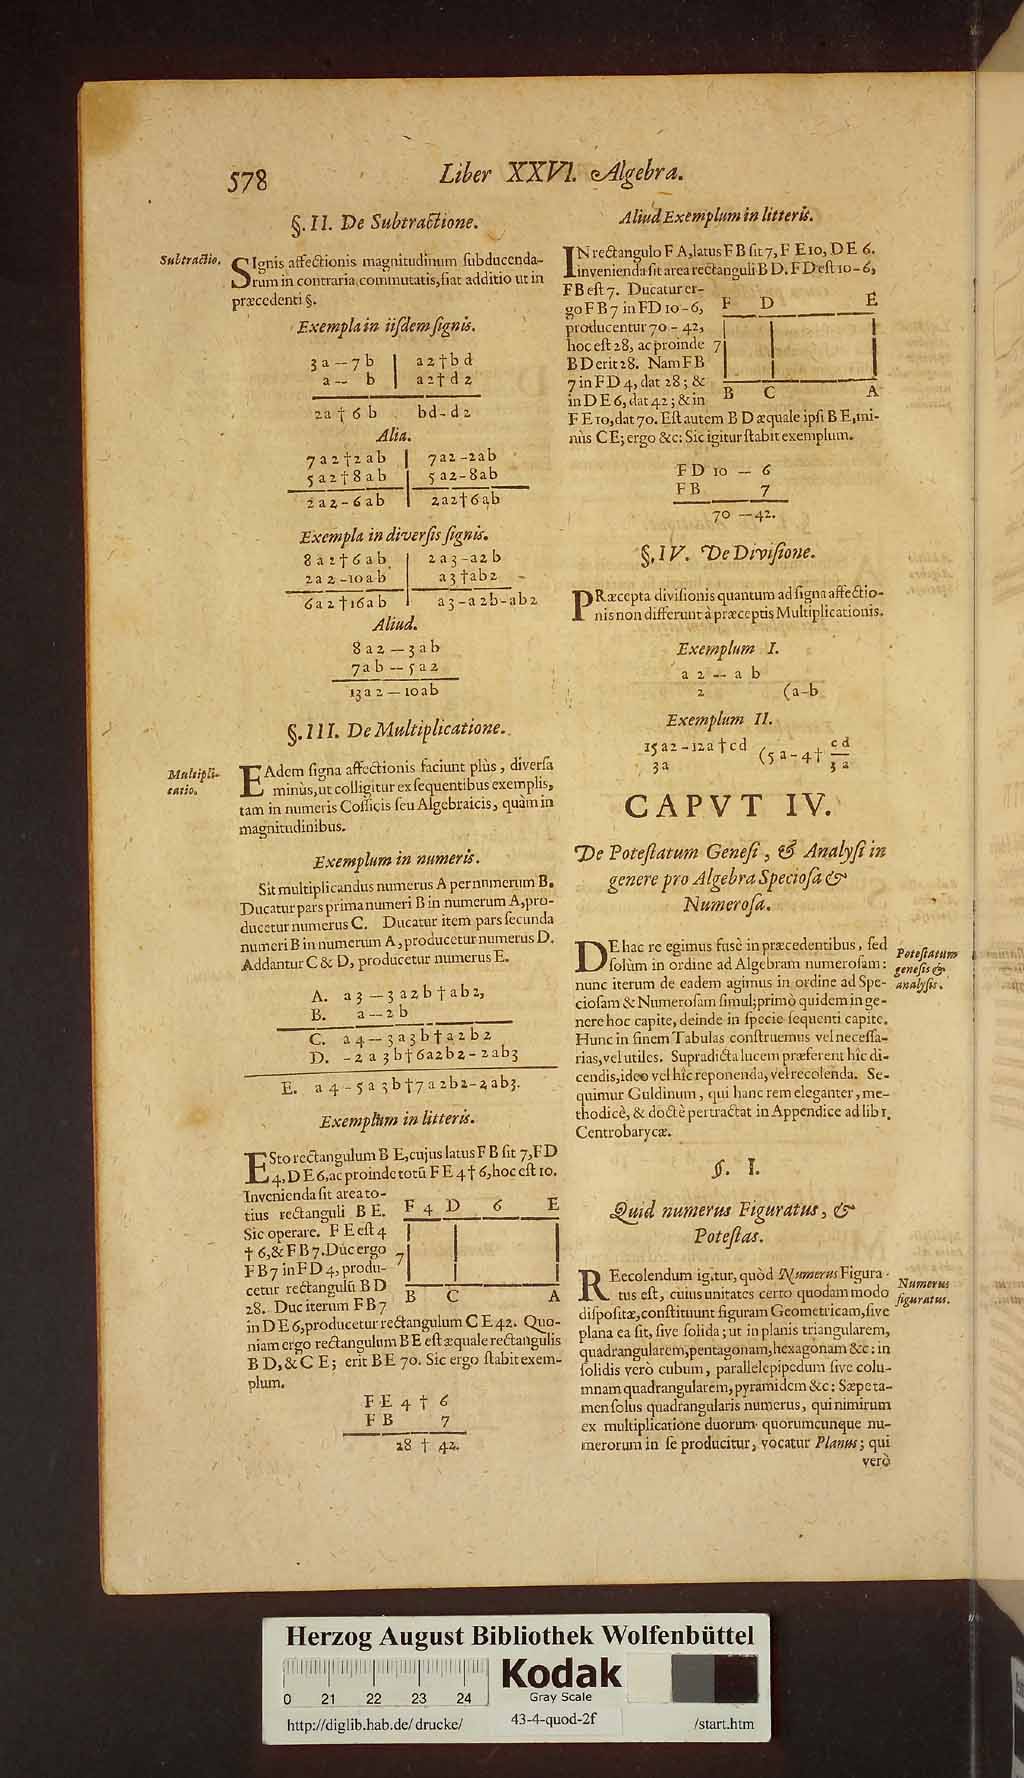 578
Liber XXVI. Algebra.
§. II. De Subtractione.
Subtractio.
SIgnis affectionis magnitudinum subducenda-
rum in contraria commutatis, fiat additio ut in
præcedenti §.
Exempla in iisdem signis.
3 a — 7 b | a2†bd
a — b | a2†d2
2a † 6 b bd-d2
Alia.
7a2†2ab | 7a2-2ab
5a2†8ab | 5a2-8ab
2a2-6ab | 2a2†6ab
Exempla in diversis signis.
8a2†6ab | 2a3-a2b
2a2-10ab | a3†ab2
6a2†16ab | a3-a2b-ab2
Aliud.
8a2 — 3ab
7ab — 5a2
13a2 — 10ab
§. III. De Multiplicatione.
Multipli-
catio.
EAdem signa affectionis faciunt plùs, diversa
minùs, ut colligitur ex sequentibus exemplis,
tam in numeris Cossicis seu Algebraicis, quàm in
magnitudinibus.
Exemplum in numeris.
Sit multiplicandus numerus A per numerum B.
Ducatur pars prima numeri B in numerum A, pro-
ducetur numerus C. Ducatur item pars secunda
numeri B in numerum A, producetur numerus D.
Addantur C & D, producetur numerus E.
A. a3 — 3a2b†ab2,
B. a — 2b
C. a4 — 3a3b†a2b2
D. -2a3b†6a2b2-2ab3
E. a4-5a3b†7a2b2-2ab3.
Exemplum in litteris.
ESto rectangulum B E, cujus latus F B sit 7, F D
4, D E 6, ac proinde totũ F E 4 † 6, hoc est 10.
Invenienda sit area to-
tius rectanguli B E.
Sic operare. F E est 4
† 6, & F B 7. Duc ergo
F B 7 in F D 4, produ-
cetur rectangulũ B D
28. Duc iterum F B 7
F 4 D 6 E
7
B C A
in D E 6, producetur rectangulum C E 42. Quo-
niam ergo rectangulum B E est æquale rectangulis
B D, & C E; erit B E 70. Sic ergo stabit exem-
plum.
F E 4 † 6
F B 7
28 † 42.
Aliud Exemplum in litteris.
IN rectangulo F A, latus F B sit 7, F E 10, D E 6.
invenienda sit area rectanguli B D. F D est 10-6,
F B est 7. Ducatur er-
go F B 7 in F D 10-6,
producentur 70 - 42,
hoc est 28, ac proinde
B D erit 28. Nam F B
7 in F D 4, dat 28; &
in D E 6, dat 42; & in
F D E
7
B C A
F E 10, dat 70. Est autem B D æquale ipsi B E, mi-
nùs C E; ergo &c: Sic igitur stabit exemplum.
F D 10 — 6
F B 7
70 — 42.
§. IV. De Divisione.
PRæcepta divisionis quantum ad signa affectio-
nis non differunt à præceptis Multiplicationis.
Exemplum I.
a 2 — a b
2 (a-b
Exemplum II.
15a2-12a†cd (5a-4† cd
3a 3a
CAPVT IV.
De Potestatum Genesi, & Analysi in
genere pro Algebra Speciosa &
Numerosa.
DE hac re egimus fusè in præcedentibus, sed
solùm in ordine ad Algebram numerosam:
nunc iterum de eadem agimus in ordine ad Spe-
ciosam & Numerosam simul; primò quidem in ge-
nere hoc capite, deinde in specie sequenti capite.
Hunc in finem Tabulas construemus vel necessa-
rias, vel utiles. Supradicta lucem præferent hîc di-
cendis, ideo vel hîc reponenda, vel recolenda. Se-
quimur Guldinum, qui hanc rem eleganter, me-
thodicè, & doctè pertractat in Appendice ad lib 1.
Centrobarycæ.
Potestatum
genesis &
analysis.
§. I.
Quid numerus Figuratus, &
Potestas.
REecolendum igitur, quòd Numerus Figura-
tus est, cuius unitates certo quodam modo
dispositæ, constituunt figuram Geometricam, sive
plana ea sit, sive solida; ut in planis triangularem,
quadrangularem, pentagonam, hexagonam &c: in
solidis verò cubum, parallelepipedum sive colu-
mnam quadrangularem, pyramidem &c: Sæpe ta-
men solus quadrangularis numerus, qui nimirum
ex multiplicatione duorum quorumcunque nu-
merorum in se producitur, vocatur Planus; qui
verò
Numerus
figuratus.
Herzog August Bibliothek Wolfenbüttel
0 21 22 23 24
Kodak
Gray Scale
http://diglib.hab.de/drucke/ 43-4-quod-2f /start.htm